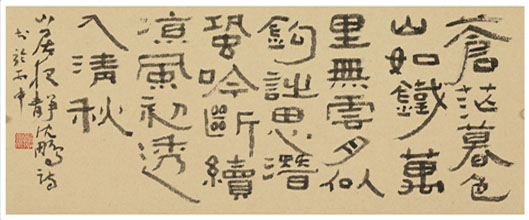 蒼茫暮色
山如鐵萬
里無雲月似
鈎詩思潛
蛩吟斷續
凉風初透
入清秋
山居夜靜沈鵬詩
書於丙申